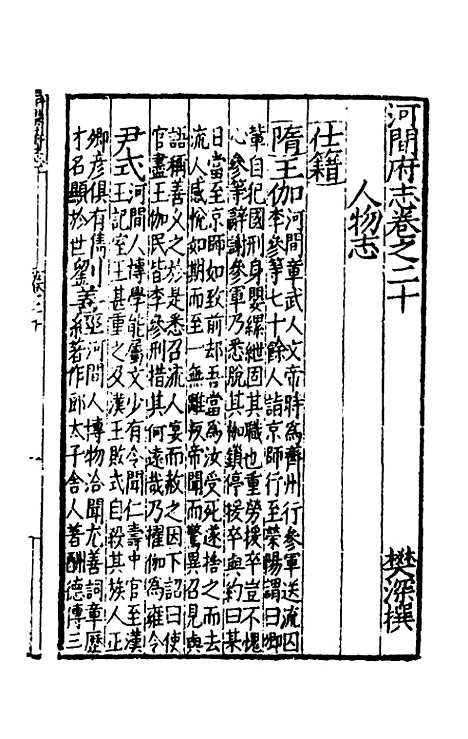 河間府志卷之二十 樊深撰
人物志
仕籍
隋王伽 河間章武人文帝時為齊州行參軍送流囚
李參等七十餘人詣京師行至滎陽謂曰卿
輩自犯國刑身嬰縲紲固其職也重勞援卒豈不愧
心參等辭謝參軍乃悉脫其枷鎖停援卒與約曰某
日當至京師如致前却吾當為汝受死遂捨之而去
流人感悅如期而至一無離叛帝聞而驚異召見與
語稱善久之於是悉召流人宴而赦之因下詔曰使
官盡王伽民皆李參刑措其何遠哉乃擢伽為雍令
尹式 河間人博學能屬文少有令聞仁壽中官至漢
王記室王甚重之及漢王敗式自殺其族人正
卿彥俱有雋
才名顯於世
劉善經 河間人博物洽聞尤善詞章歷
著作郎太子舍人著酬德傳三